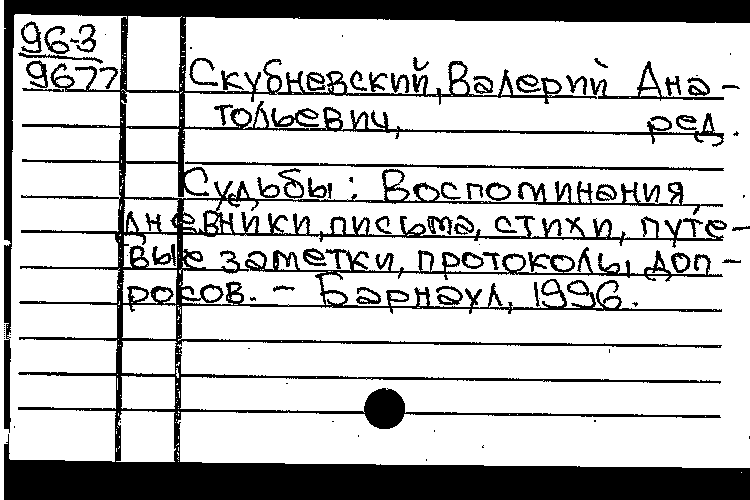 96-3
9677
Скубневский, Валерий Ана-
тольевич, ред.
Судьбы: Воспоминания,
дневники, письма, стихи, путе-
вые заметки, протоколы доп-
росов. - Барнаул, 1996.